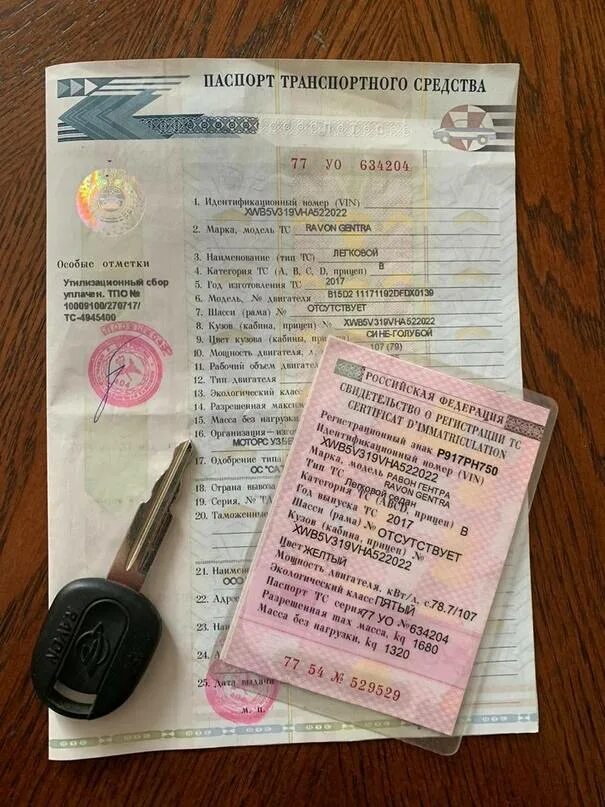 ПАСПОРТ ТРАНСПОРТНОГО СРЕДСТВА
77 УО 634204
1. Идентификационный номер (VIN)
XWB5V319VHA522022
2. Марка, модель ТС RAVON GENTRA
3. Наименование (тип ТС) ЛЕГКОВОЙ
4. Категория ТС (А, В, С, D, прицеп) В
5. Год изготовления ТС 2017
6. Модель, № двигателя B15D2 11171192DFDX0139
7. Шасси (рама) № ОТСУТСТВУЕТ
8. Кузов (кабина, прицеп) № XWB5V319VHA522022
9. Цвет кузова (кабины, СИНЕ-ГОЛУБОЙ
10. Мощность двигателя, л. 107 (79)
11. Рабочий объем двигате
12. Тип двигателя
13. Экологический клас
14. Разрешенная максим
15. Масса без нагрузки
16. Организация—изго
МОТОРС УЗБЕ
17. Одобрение типа
ОС "СА
18. Страна вывоза
19. Серия, №
20. Таможенны
21. Наимен
ООО
22. Адре
23. На
24.
25. Дата выдачи
М. П.
Особые отметки
Утилизационный сбор
уплачен. ТПО №
10009100/270717/
ТС-4945400
RAVON
РОССИЙСКАЯ ФЕДЕРАЦИЯ
СВИДЕТЕЛЬСТВО О РЕГИСТРАЦИИ ТС
CERTIFICAT D'IMMATRICULATION
Регистрационный знак Р917РН750
Идентификационный номер (VIN)
XWB5V319VHA522022
Марка, модель РАВОН ГЕНТРА
RAVON GENTRA
Тип ТС Легковой седан
Категория ТС (ABCD, прицеп) В
Год выпуска ТС 2017
Шасси (рама) № ОТСУТСТВУЕТ
Кузов (кабина, прицеп) №
XWB5V319VHA522022
Цвет ЖЕЛТЫЙ
Мощность двигателя, кВт/л. с. 78.7/107
Экологический класс ПЯТЫЙ
Паспорт ТС серия 77 УО № 634204
Разрешенная max масса, kg 1680
Масса без нагрузки, kg 1320
77 54 № 529529